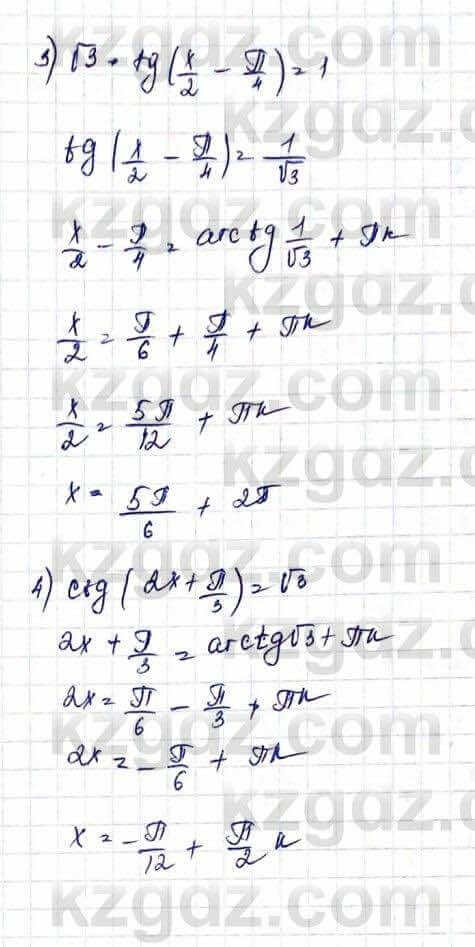 3) √3 · tg(x/2 − π/4) = 1
tg(x/2 − π/4) = 1/√3
x/2 − π/4 = arctg 1/√3 + πk
x/2 = π/6 + π/4 + πk
x/2 = 5π/12 + πk
x = 5π/6 + 2π
4) ctg(2x + π/3) = √3
2x + π/3 = arctg√3 + πk
2x = π/6 − π/3 + πk
2x = −π/6 + πk
x = −π/12 + π/2 k
kzgdz.com